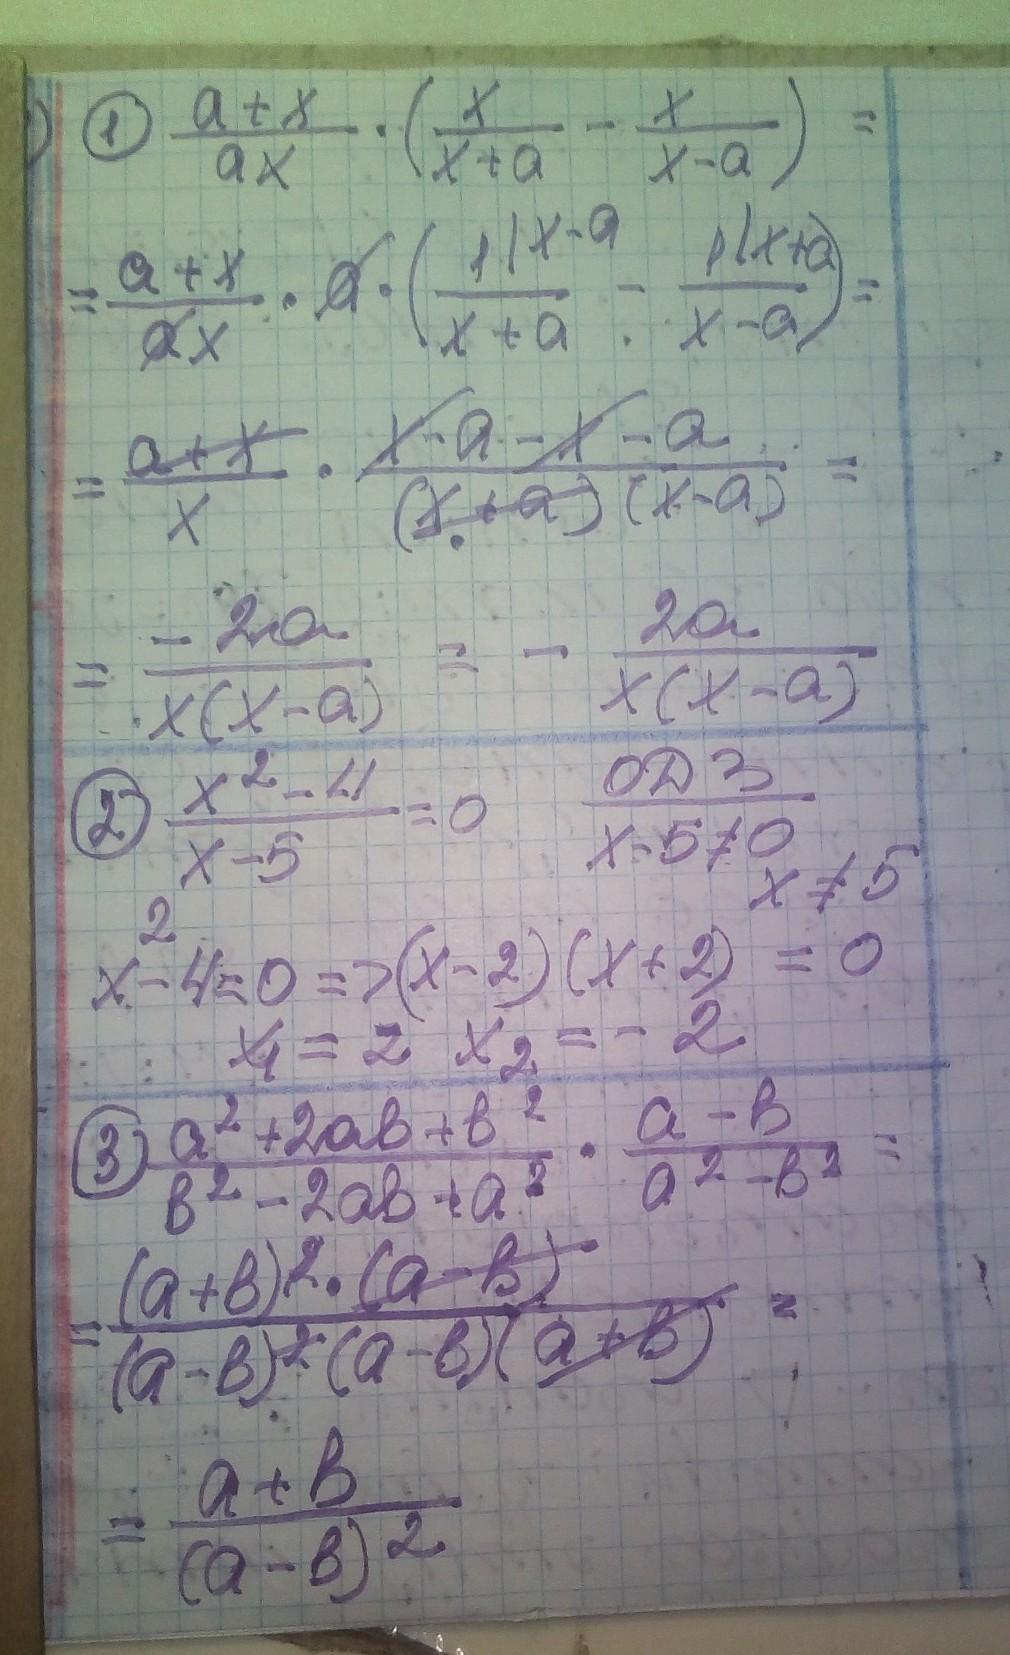 ) ① (a+x)/(ax) · (x/(x+a) - x/(x-a)) =
= (a+x)/(ax) · a · (1|x-a/(x+a) - 1|x+a/(x-a)) =
= (a+x)/x · (x-a-x-a)/((x+a)(x-a)) =
= (-2a)/(x(x-a)) = - 2a/(x(x-a))
② (x²-4)/(x-5) = 0 ОДЗ
x-5≠0
x≠5
x²-4=0 => (x-2)(x+2) = 0
x₁ = 2 x₂ = -2
③ (a²+2ab+b²)/(b²-2ab+a²) · (a-b)/(a²-b²) =
= ((a+b)²·(a-b))/((a-b)²·(a-b)(a+b)) =
= (a+b)/(a-b)²